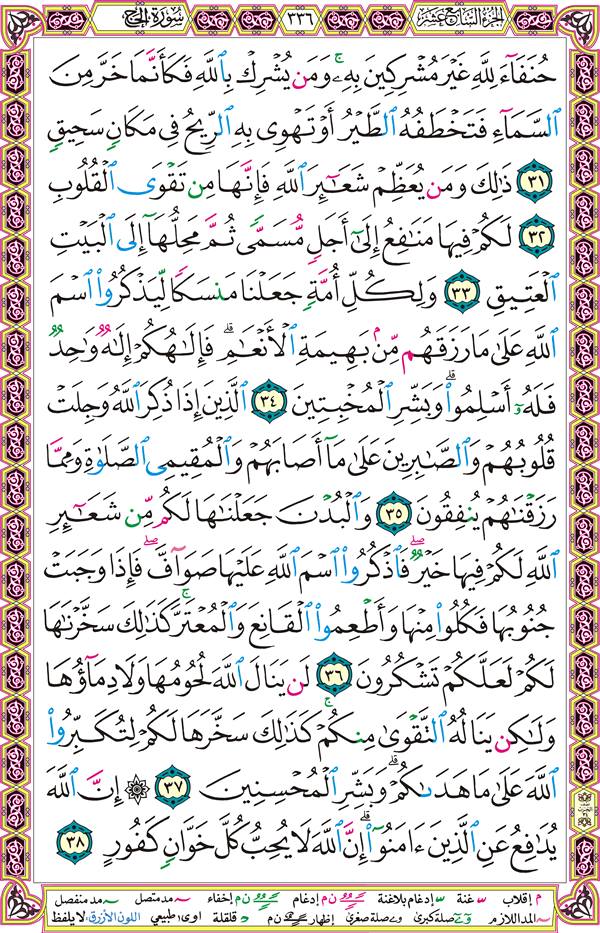 الجزء السابع عشر ٣٣٦ سورة الحج
حُنَفَآءَ لِلَّهِ غَيْرَ مُشْرِكِينَ بِهِۦۚ وَمَن يُشْرِكْ بِٱللَّهِ فَكَأَنَّمَا خَرَّ مِنَ
ٱلسَّمَآءِ فَتَخْطَفُهُ ٱلطَّيْرُ أَوْ تَهْوِى بِهِ ٱلرِّيحُ فِى مَكَانٍ سَحِيقٍ
٣١ ذَٰلِكَ وَمَن يُعَظِّمْ شَعَـٰٓئِرَ ٱللَّهِ فَإِنَّهَا مِن تَقْوَى ٱلْقُلُوبِ
٣٢ لَكُمْ فِيهَا مَنَـٰفِعُ إِلَىٰٓ أَجَلٍ مُّسَمًّى ثُمَّ مَحِلُّهَآ إِلَى ٱلْبَيْتِ
ٱلْعَتِيقِ ٣٣ وَلِكُلِّ أُمَّةٍ جَعَلْنَا مَنسَكًا لِّيَذْكُرُوا۟ ٱسْمَ
ٱللَّهِ عَلَىٰ مَا رَزَقَهُم مِّنۢ بَهِيمَةِ ٱلْأَنْعَـٰمِۗ فَإِلَـٰهُكُمْ إِلَـٰهٌ وَٰحِدٌ
فَلَهُۥٓ أَسْلِمُوا۟ۗ وَبَشِّرِ ٱلْمُخْبِتِينَ ٣٤ ٱلَّذِينَ إِذَا ذُكِرَ ٱللَّهُ وَجِلَتْ
قُلُوبُهُمْ وَٱلصَّـٰبِرِينَ عَلَىٰ مَآ أَصَابَهُمْ وَٱلْمُقِيمِى ٱلصَّلَوٰةِ وَمِمَّا
رَزَقْنَـٰهُمْ يُنفِقُونَ ٣٥ وَٱلْبُدْنَ جَعَلْنَـٰهَا لَكُم مِّن شَعَـٰٓئِرِ
ٱللَّهِ لَكُمْ فِيهَا خَيْرٌۖ فَٱذْكُرُوا۟ ٱسْمَ ٱللَّهِ عَلَيْهَا صَوَآفَّۖ فَإِذَا وَجَبَتْ
جُنُوبُهَا فَكُلُوا۟ مِنْهَا وَأَطْعِمُوا۟ ٱلْقَانِعَ وَٱلْمُعْتَرَّۚ كَذَٰلِكَ سَخَّرْنَـٰهَا
لَكُمْ لَعَلَّكُمْ تَشْكُرُونَ ٣٦ لَن يَنَالَ ٱللَّهَ لُحُومُهَا وَلَا دِمَآؤُهَا
وَلَـٰكِن يَنَالُهُ ٱلتَّقْوَىٰ مِنكُمْۚ كَذَٰلِكَ سَخَّرَهَا لَكُمْ لِتُكَبِّرُوا۟
ٱللَّهَ عَلَىٰ مَا هَدَىٰكُمْۗ وَبَشِّرِ ٱلْمُحْسِنِينَ ٣٧ ۞ إِنَّ ٱللَّهَ
يُدَٰفِعُ عَنِ ٱلَّذِينَ ءَامَنُوٓا۟ۗ إِنَّ ٱللَّهَ لَا يُحِبُّ كُلَّ خَوَّانٍ كَفُورٍ ٣٨
م إقلاب غنة إدغام بلاغنة ن م إدغام ن م إخفاء مد متصل مد منفصل
المد اللازم صلة كبرى صلة صغرى إظهار ن م قلقلة اوى طبيعي اللون الأزرق: لا يلفظ